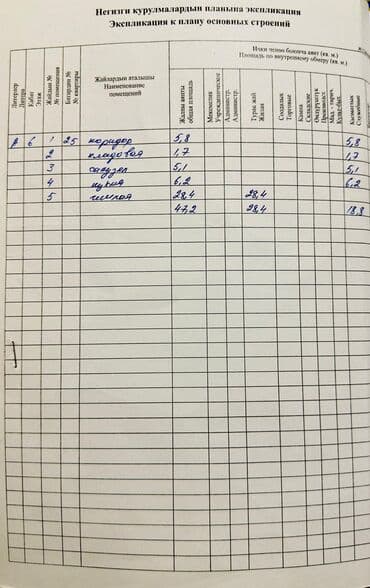 Негизги курулмалардын планына экспликация
Экспликация к плану основных строений
Литерлер
Литера
Кабат
Этаж
Жайдын №
№ помещения
Батирдин №
№ квартиры
Жайлардын аталышы
Наименование
помещений
Ички ченөө боюнча аянт (кв. м.)
Площадь по внутреннему обмеру (кв. м.)
Жалпы аянты
общая площадь
Мекемелик
Учрежденческое
Административ.
Администр.
Турак жай
Жилая
Соодалык
Торговые
Кампа
Складские
Өндүрүштүк
Производст.
Кызматтык
Служебные
А 6 1 25 коридор 5,8 5,8
2 кладовая 1,7 1,7
3 санузел 5,1 5,1
4 кухня 6,2 6,2
5 жилая 28,4 28,4
47,2 28,4 18,8